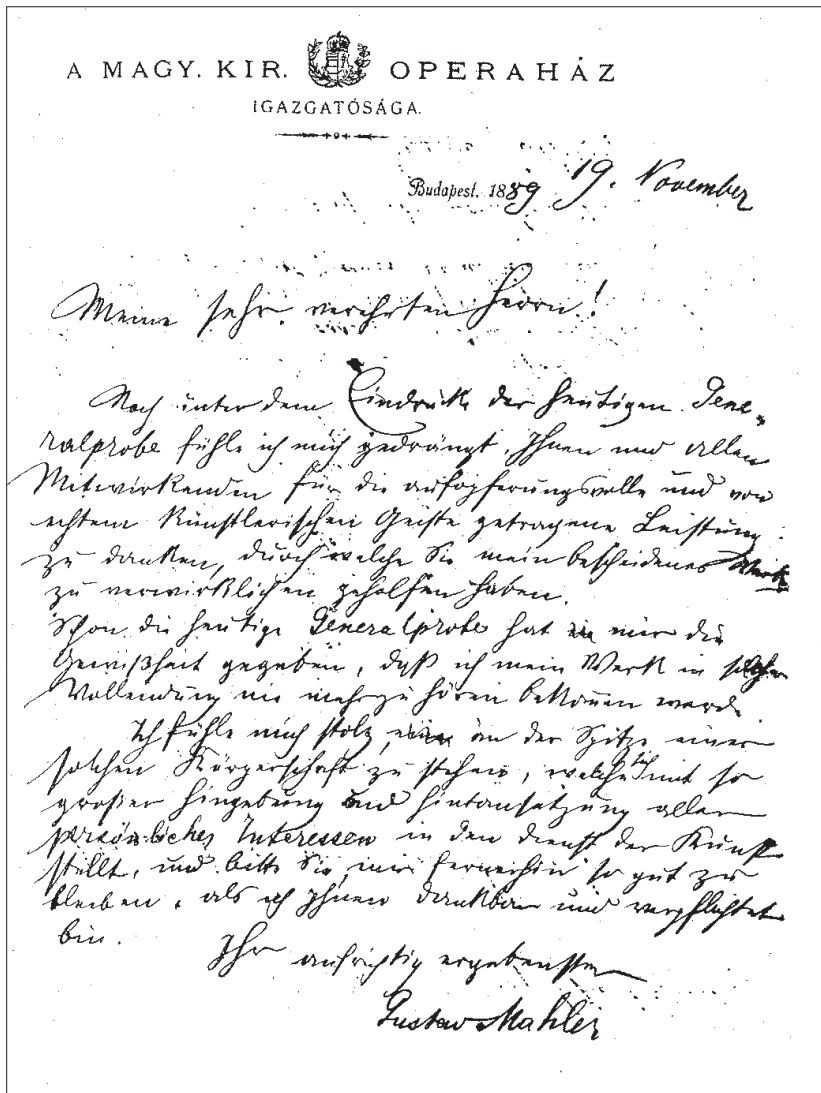 A MAGY. KIR. OPERAHÁZ
IGAZGATÓSÁGA.
Budapest, 1889 19. November
Meine sehr verehrten Herrn!
Noch unter dem Eindrucke der heutigen Gene-
ralprobe fühle ich mich gedrängt, Ihnen und allen
Mitwirkenden für die aufopferungsvolle und von
echtem künstlerischen Geiste getragene Leistung
zu danken, durch welche Sie mein bescheidenes Werk
zu verwirklichen geholfen haben.
Schon die heutige Generalprobe hat in mir die
Gewißheit gegeben, daß ich mein Werk in solcher
Vollendung nie mehr zu hören bekommen werde.
Ich fühle mich stolz, an der Spitze einer
solchen Körperschaft zu stehen, welche sich mit so
großer Hingebung und Hintansetzung aller
persönlichen Interessen in den Dienst der Kunst
stellt, und bitte Sie, mir fernerhin so gut zu
bleiben, als ich Ihnen dankbar und verpflichtet
bin.
Ihr aufrichtig ergebenster
Gustav Mahler